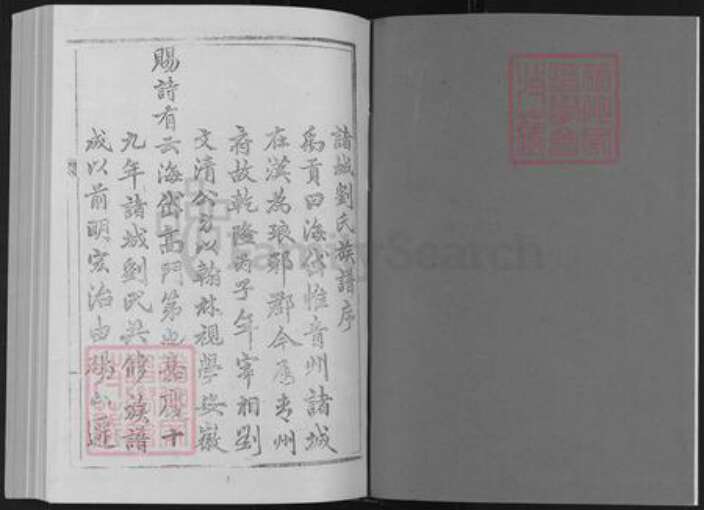 諸城劉氏族譜序
禹貢曰海岱惟青州諸城
在漢為琅邪郡今屬青州
府故乾隆丙子年宰相劉
文清公方以翰林視學安徽
賜詩有云海岱高門第也嘉慶十
九年諸城劉氏共修族譜
成以前明宏治由
FamilySearch